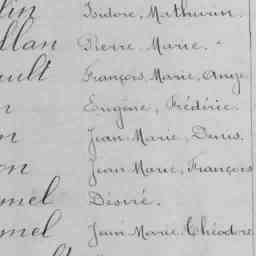 lin Isidore, Mathurin.
llan Pierre Marie.
ault François, Marie, Ange
n Eugène, Frédéric.
n Jean Marie, Denis.
on Jean Marie, François
mel Désiré.
mel Jean Marie, Théodore